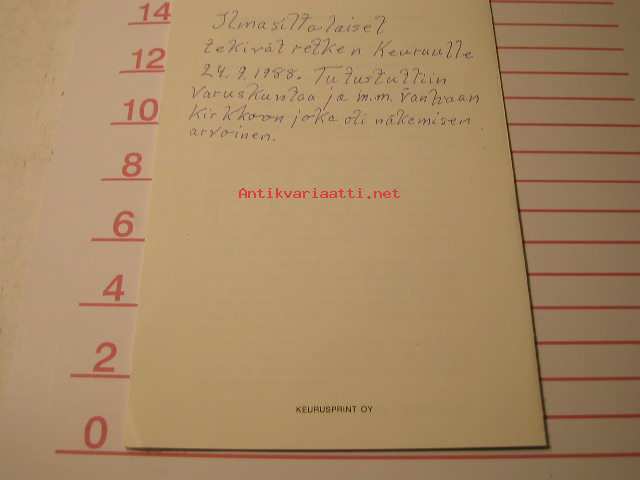 14
Ilmasiltalaiset
tekivät retken Keuruulle
12
24.9.1988. Tutustuttiin
varuskuntaa ja m.m. vanhaan
10
Kirkkoon joka oli näkemisen
arvoinen.
8
Antikvariaatti.net
6
4
2
KEURUSPRINT OY
0